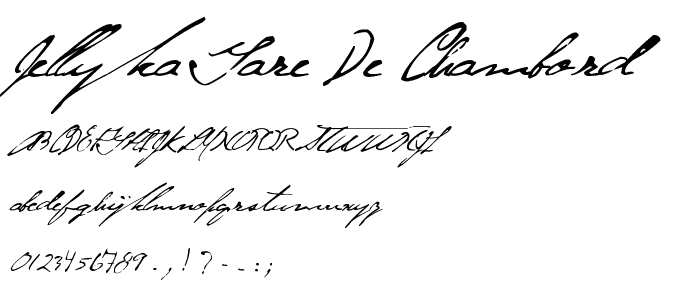 Jellyka Gare De Chambord
ABCDEFGHIJKLMNOPQRSTUVWXYZ
abcdefghijklmnopqrstuvwxyz
0123456789.,!?--:;